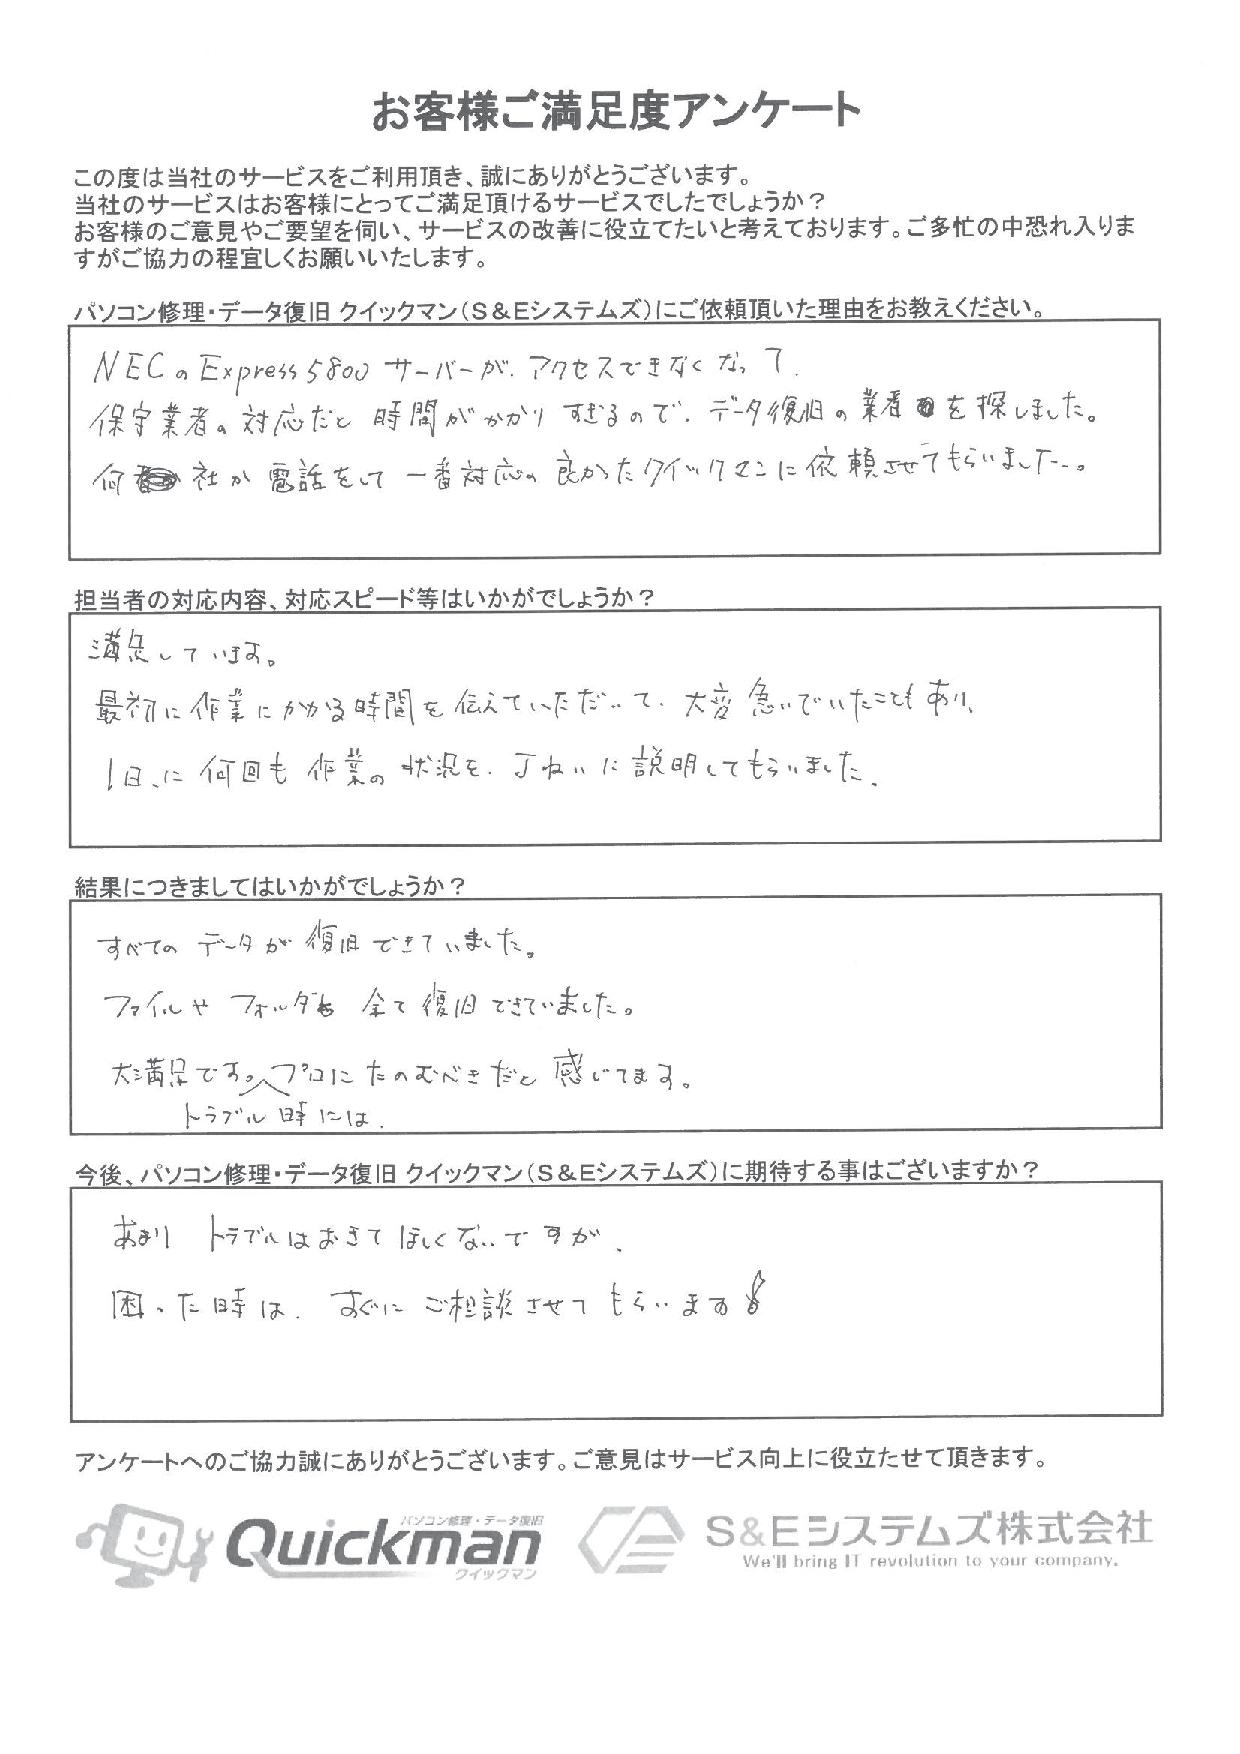 お客様ご満足度アンケート
この度は当社のサービスをご利用頂き、誠にありがとうございます。
当社のサービスはお客様にとってご満足頂けるサービスでしたでしょうか？
お客様のご意見やご要望を伺い、サービスの改善に役立てたいと考えております。ご多忙の中恐れ入りま
すがご協力の程宜しくお願いいたします。
パソコン修理・データ復旧 クイックマン（S＆Eシステムズ）にご依頼頂いた理由をお教えください。
NECのExpress5800 サーバーが、アクセスできなくなって、
保守業者の対応だと時間がかかりすぎるので、データ復旧の業者を探しました。
何社か電話をして一番対応の良かたクイックマンに依頼させてもらいました。
担当者の対応内容、対応スピード等はいかがでしょうか？
満足しています。
最初に作業にかかる時間を伝えていただいて、大変急いでいたこともあり、
1日に何回も作業の状況を、丁ねいに説明してもらいました。
結果につきましてはいかがでしょうか？
すべてのデータが復旧できていました。
ファイルやフォルダも全て復旧できていました。
大満足です。プロにたのむべきだと感じてます。
トラブル時には、
今後、パソコン修理・データ復旧 クイックマン（S＆Eシステムズ）に期待する事はございますか？
あまりトラブルはおきてほしくないですが、
困った時は、すぐにご相談させてもらいます!
アンケートへのご協力誠にありがとうございます。ご意見はサービス向上に役立たせて頂きます。
パソコン修理・データ復旧
Quickman
クイックマン
S&Eシステムズ株式会社
We'll bring IT revolution to your company.